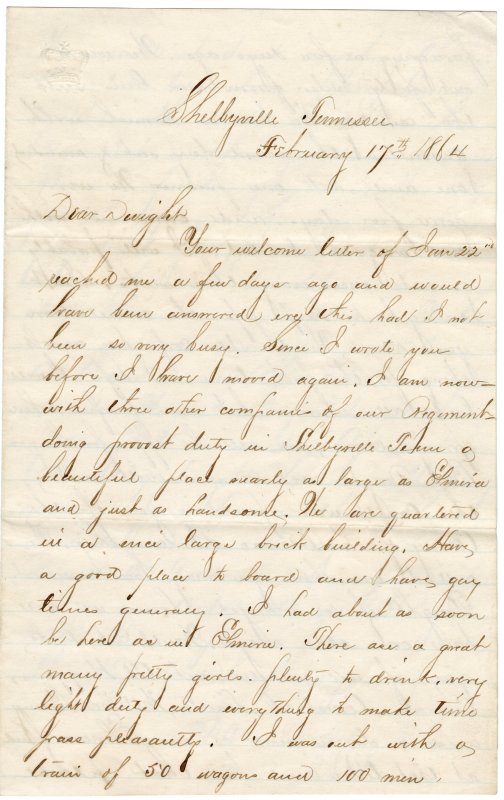 Shelbyville Tennessee
February 17th 1864
Dear Dwight
Your welcome letter of Jan 22nd
reached me a few days ago and would
have been answered ere this had I not
been so very busy. Since I wrote you
before I have moved again. I am now
with three other companies of our Regiment
doing provost duty in Shelbyville Tenn a
beautiful place nearly as large as Elmira
and just as handsome. We are quartered
in a nice large brick building. Have
a good place to board and have gay
times generaly. I had about as soon
be here as in Elmira. There are a great
many pretty girls. plenty to drink. very
light duty and everything to make time
pass pleasantly. I was out with a
train of 50 wagons and 100 men.